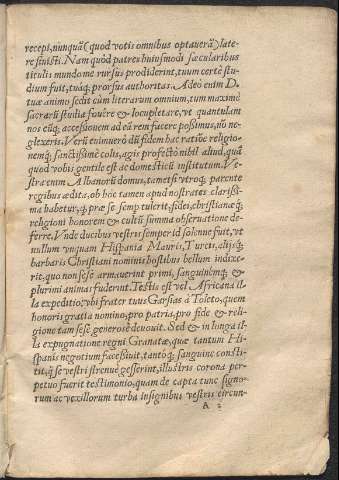 recepi, nunquã (quod votis omnibus optauerã) late-
re siuisti. Nam quòd patres huiusmodi sæcularibus
titulis mundo me rursus prodiderint, tuum certè stu-
dium fuit, tuáq; prorsus authoritas. Adeò enim D.
tuæ animo sedit cùm literarum omnium, tum maximè
sacrarũ studia fouêre & locupletare, vt quantulam
nos eúq; accessionem ad eã rem facere possimus, nõ ne-
glexeris. Verũ enimuerò dũ fidem hac ratiõe religio-
nemq; sanctissimè colis, agis profectò nihil aliud, quã
quod vobis gentile est ac domesticũ institutum. Ve-
stra enim Albanorũ domus, tametsi vtroq; parente
regibus ædita, ob hoc tamen apud nostrates clarißi-
ma habetur, q̃ præ se semp tulerit, fidei, christianæq́;
religioni honorem & cultũ summa obseruatione de-
ferre. Vnde ducibus vestris semper id solenne fuit, vt
nullum vnquam Hispania Mauris, Turcis, alijsq́;
barbaris Christiani nominis hostibus bellum indixe-
rit, quo non sese armauerint primi, sanguinémq́; &
plurimi animas fuderint. Testis est vel Africana il-
la expeditio, vbi frater tuus Garsias à Toleto, quem
honoris gratia nomino, pro patria, pro fide & reli-
gione tam sese generosè deuouit. Sed & in longa il-
lis expugnatione regni Granatæ, quæ tantum Hi-
spanis negotium facessiuit, tantóq; sanguine consti-
tit, q̃ se vestri strenuè gesserint, illustris corona per-
petuo fuerit testimonio, quam de capta tunc signo-
rum ac vexillorum turba insignibus vestris circun-
A 3